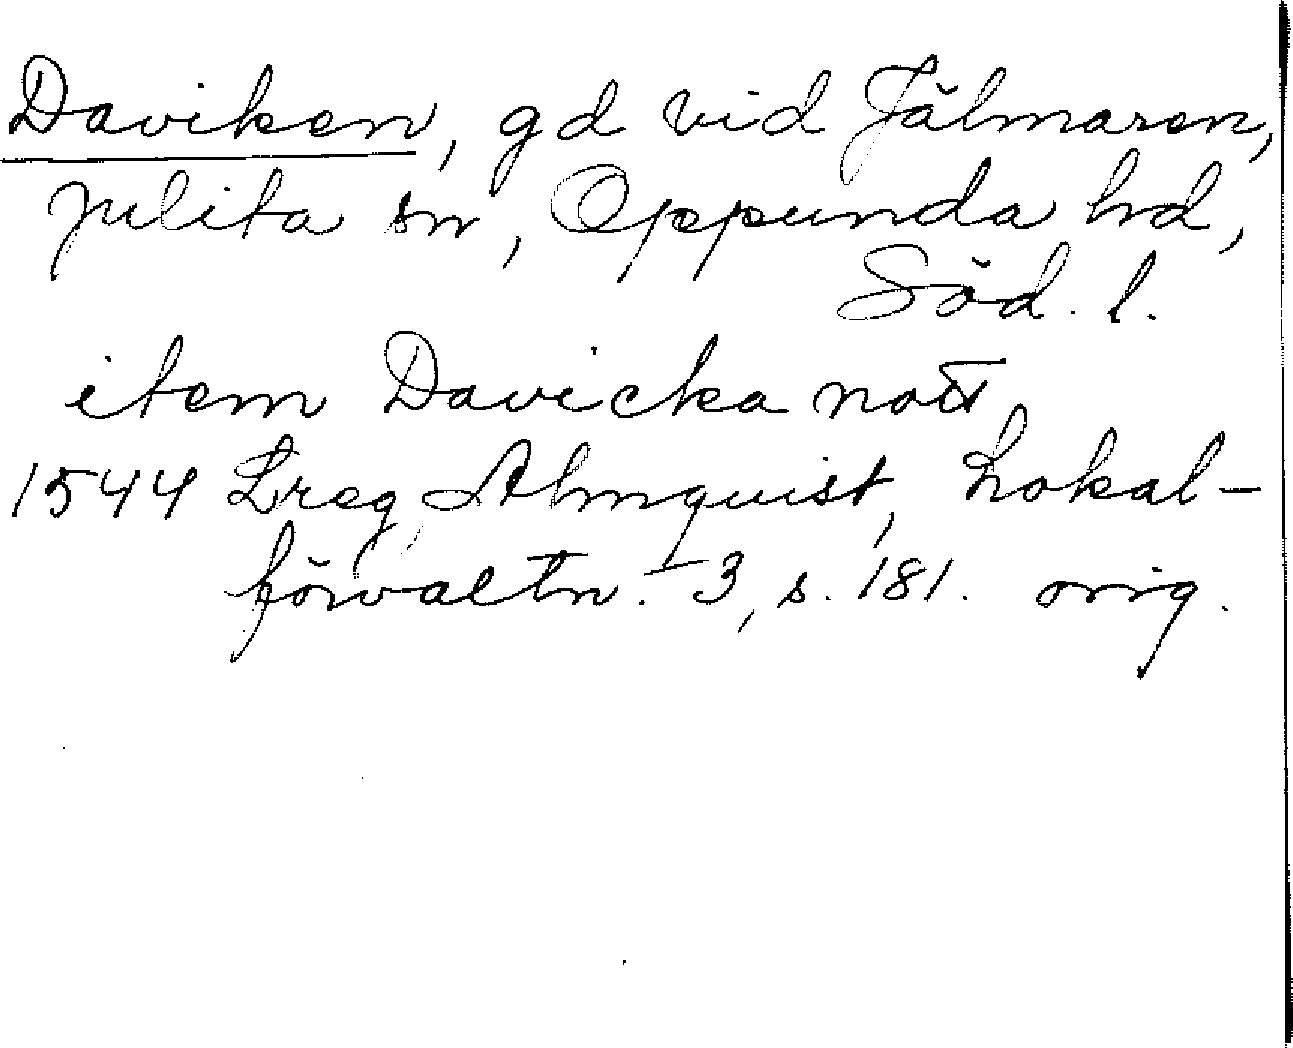 Daviken, gd vid Jälmaren,
Julita sn, Oppunda hd,
Söd. l.
item Davicka nott
1544 Lreg, Almquist, Lokal-
förvaltn. I 3, s. 181. orig.